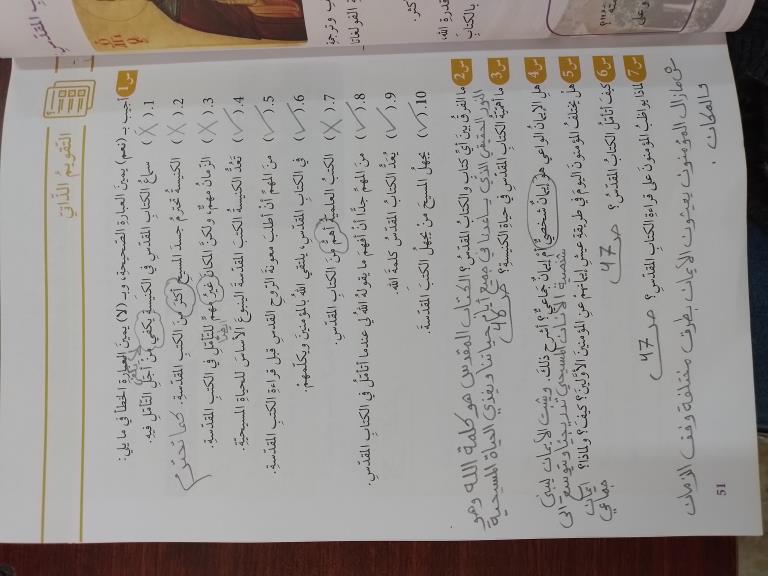 التقويمُ الذّاتيّ
س1 أجيب بـ (نعم) يمينَ العبارةِ الصّحيحةِ، وبـ (لا) يمينَ العبارةِ الخطأ في ما يلي:
1. (X) سماعُ الكتابِ المقدّسِ في الكنيسةِ يكفي من أجلِ التّأمّلِ فيه.
2. (X) الكنيسةُ تحترمُ جسدَ المسيحِ أكثرَ من الكتبِ المقدّسةِ. كما تحترم
3. (X) الزّمانُ مهمٌّ، ولكنّ المكانَ غيرُ مهمٍّ للتّأمّلِ في الكتبِ المقدّسةِ.
4. (✓) تَعُدُّ الكنيسةُ الكتبَ المقدّسةَ الينبوعَ الأساسَ للحياةِ المسيحيّةِ.
5. (✓) منَ المهمِّ أنْ أطلبَ معونةَ الرّوحِ القدسِ قبلَ قراءةِ الكتبِ المقدّسةِ.
6. (✓) في الكتابِ المقدّسِ، يلتقي اللهُ بالمؤمنينَ ويكلّمهم.
7. (X) الكتبُ العلميّةُ أهمُّ منَ الكتابِ المقدّسِ.
8. (✓) منَ المهمِّ جدًّا أنْ أفهمَ ما يقولهُ اللهُ لي عندما أتأمّلُ في الكتابِ المقدّسِ.
9. (✓) يُعَدُّ الكتابُ المقدّسُ كلمةَ اللهِ.
10. (✓) يجهلُ المسيحَ من يجهلُ الكتبَ المقدّسةَ.
س2 ما الفرقُ بينَ أيِّ كتابٍ والكتابِ المقدّسِ؟ الكتاب المقدس هو كلمة الله وهو
النور الحقيقي الذي يساعدنا في جميع أيام حياتنا ويغذي الحياة المسيحية
س3 ما أهمّيّةُ الكتابِ المقدّسِ في حياةِ الكنيسةِ؟ ص 46
س4 هلِ الإيمانُ الواعي هو إيمانٌ شخصيٌّ أمْ إيمانٌ جماعيٌّ؟ أشرحُ ذلكَ. الايمان يبنى
شخصية الانسان المسيحي تدريجيا ويتوسع الى
ايمان
جماعي
س5 هل يختلفُ المؤمنونَ اليومَ في طريقةِ عيشِ إيمانهمْ عنِ المؤمنينَ الأوّلينَ؟ كيفَ؟ ولماذا؟
س6 كيفَ أتأمّلُ الكتابَ المقدّسَ؟ ص 47
س7 لماذا يواظبُ المؤمنونَ على قراءةِ الكتابِ المقدّسِ؟ ص 47
مازال المؤمنون يعيشون الايمان بطرق مختلفة وفق الزمان
والمكان.
51